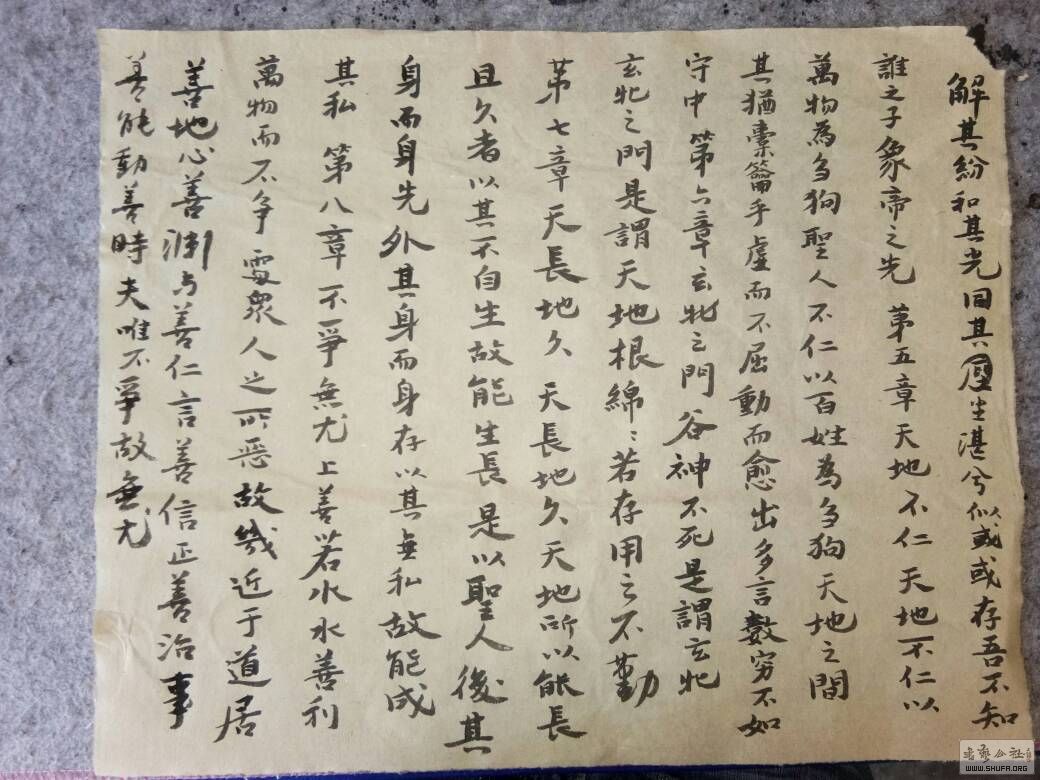 解其紛和其光同其塵尘湛兮似或或存吾不知
誰之子象帝之先 第五章天地不仁天地不仁以
萬物為芻狗聖人不仁以百姓為芻狗天地之間
其猶橐籥乎虛而不屈動而愈出多言數穷不如
守中 第六章玄牝之門谷神不死是謂玄牝
玄牝之門是謂天地根綿〻若存用之不勤
第七章天長地久天長地久天地所以能長
且久者以其不自生故能生長是以聖人後其
身而身先外其身而身存以其無私故能成
其私 第八章不爭無尤上善若水水善利
萬物而不争處衆人之所恶故幾近于道居
善地心善淵与善仁言善信正善治事
善能動善時夫唯不爭故無尤
WWW.SHUFA.ORG